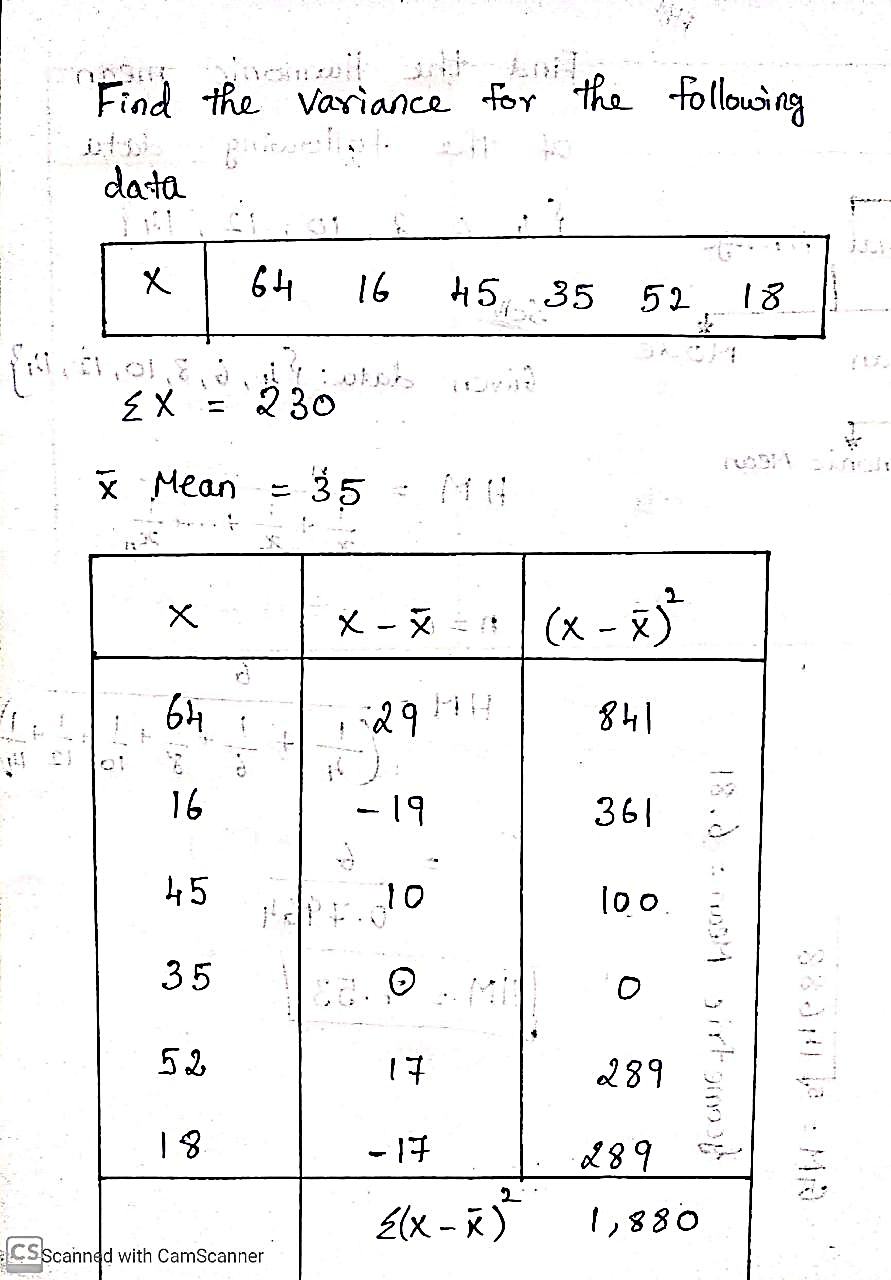 Find the Variance for the following
data
X 64 16 45 35 52 18
ΣX = 230
x̄ Mean = 35
X X - x̄ (X - x̄)²
64 29 841
16 -19 361
45 10 100
35 0 0
52 17 289
18 -17 289
Σ(X - x̄)² 1,880
CS Scanned with CamScanner